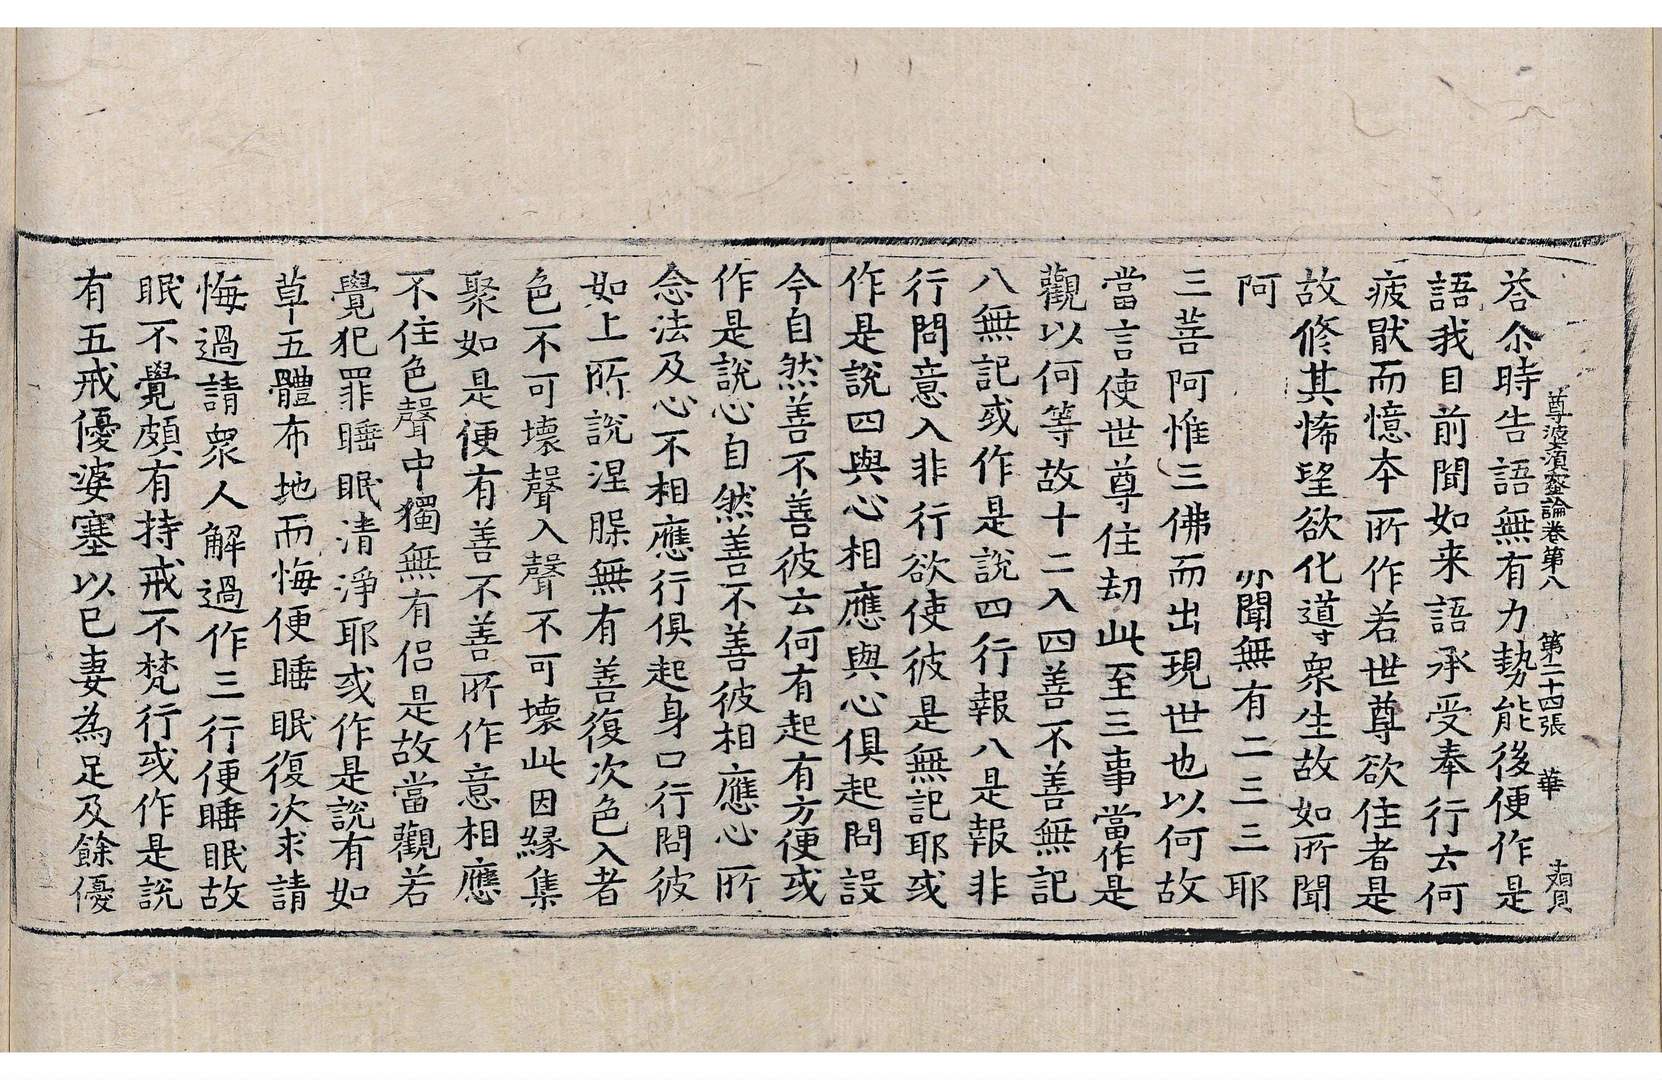 尊婆須蜜論卷第八 第二十四張 華
荅尒時告語無有力勢能後便作是
語我目前聞如来語承受奉行云何
疲猒而憶本所作若世尊欲住者是
故修其悕望欲化導衆生故如所聞
阿 聞無有二三三耶
三菩阿惟三佛而出現世也以何故
當言使世尊住劫此至三事當作是
觀以何等故十二入四善不善無記
八無記或作是說四行報八是報非
行問意入非行欲使彼是無記耶或
作是說四與心相應與心俱起問設
今自然善不善彼云何有起有方便或
作是說心自然善不善彼相應心所
念法及心不相應行俱起身口行問彼
如上所說涅𦝫無有善復次色入者
色不可壞聲入聲不可壞此因緣集
聚如是便有善不善所作意相應
不住色聲中獨無有侶是故當觀若
覺犯罪睡眠清淨耶或作是說有如
草五體布地而悔便睡眠復次求請
悔過請衆人解過作三行便睡眠故
眠不覺頗有持戒不梵行或作是說
有五戒優婆塞以已妻為足及餘優